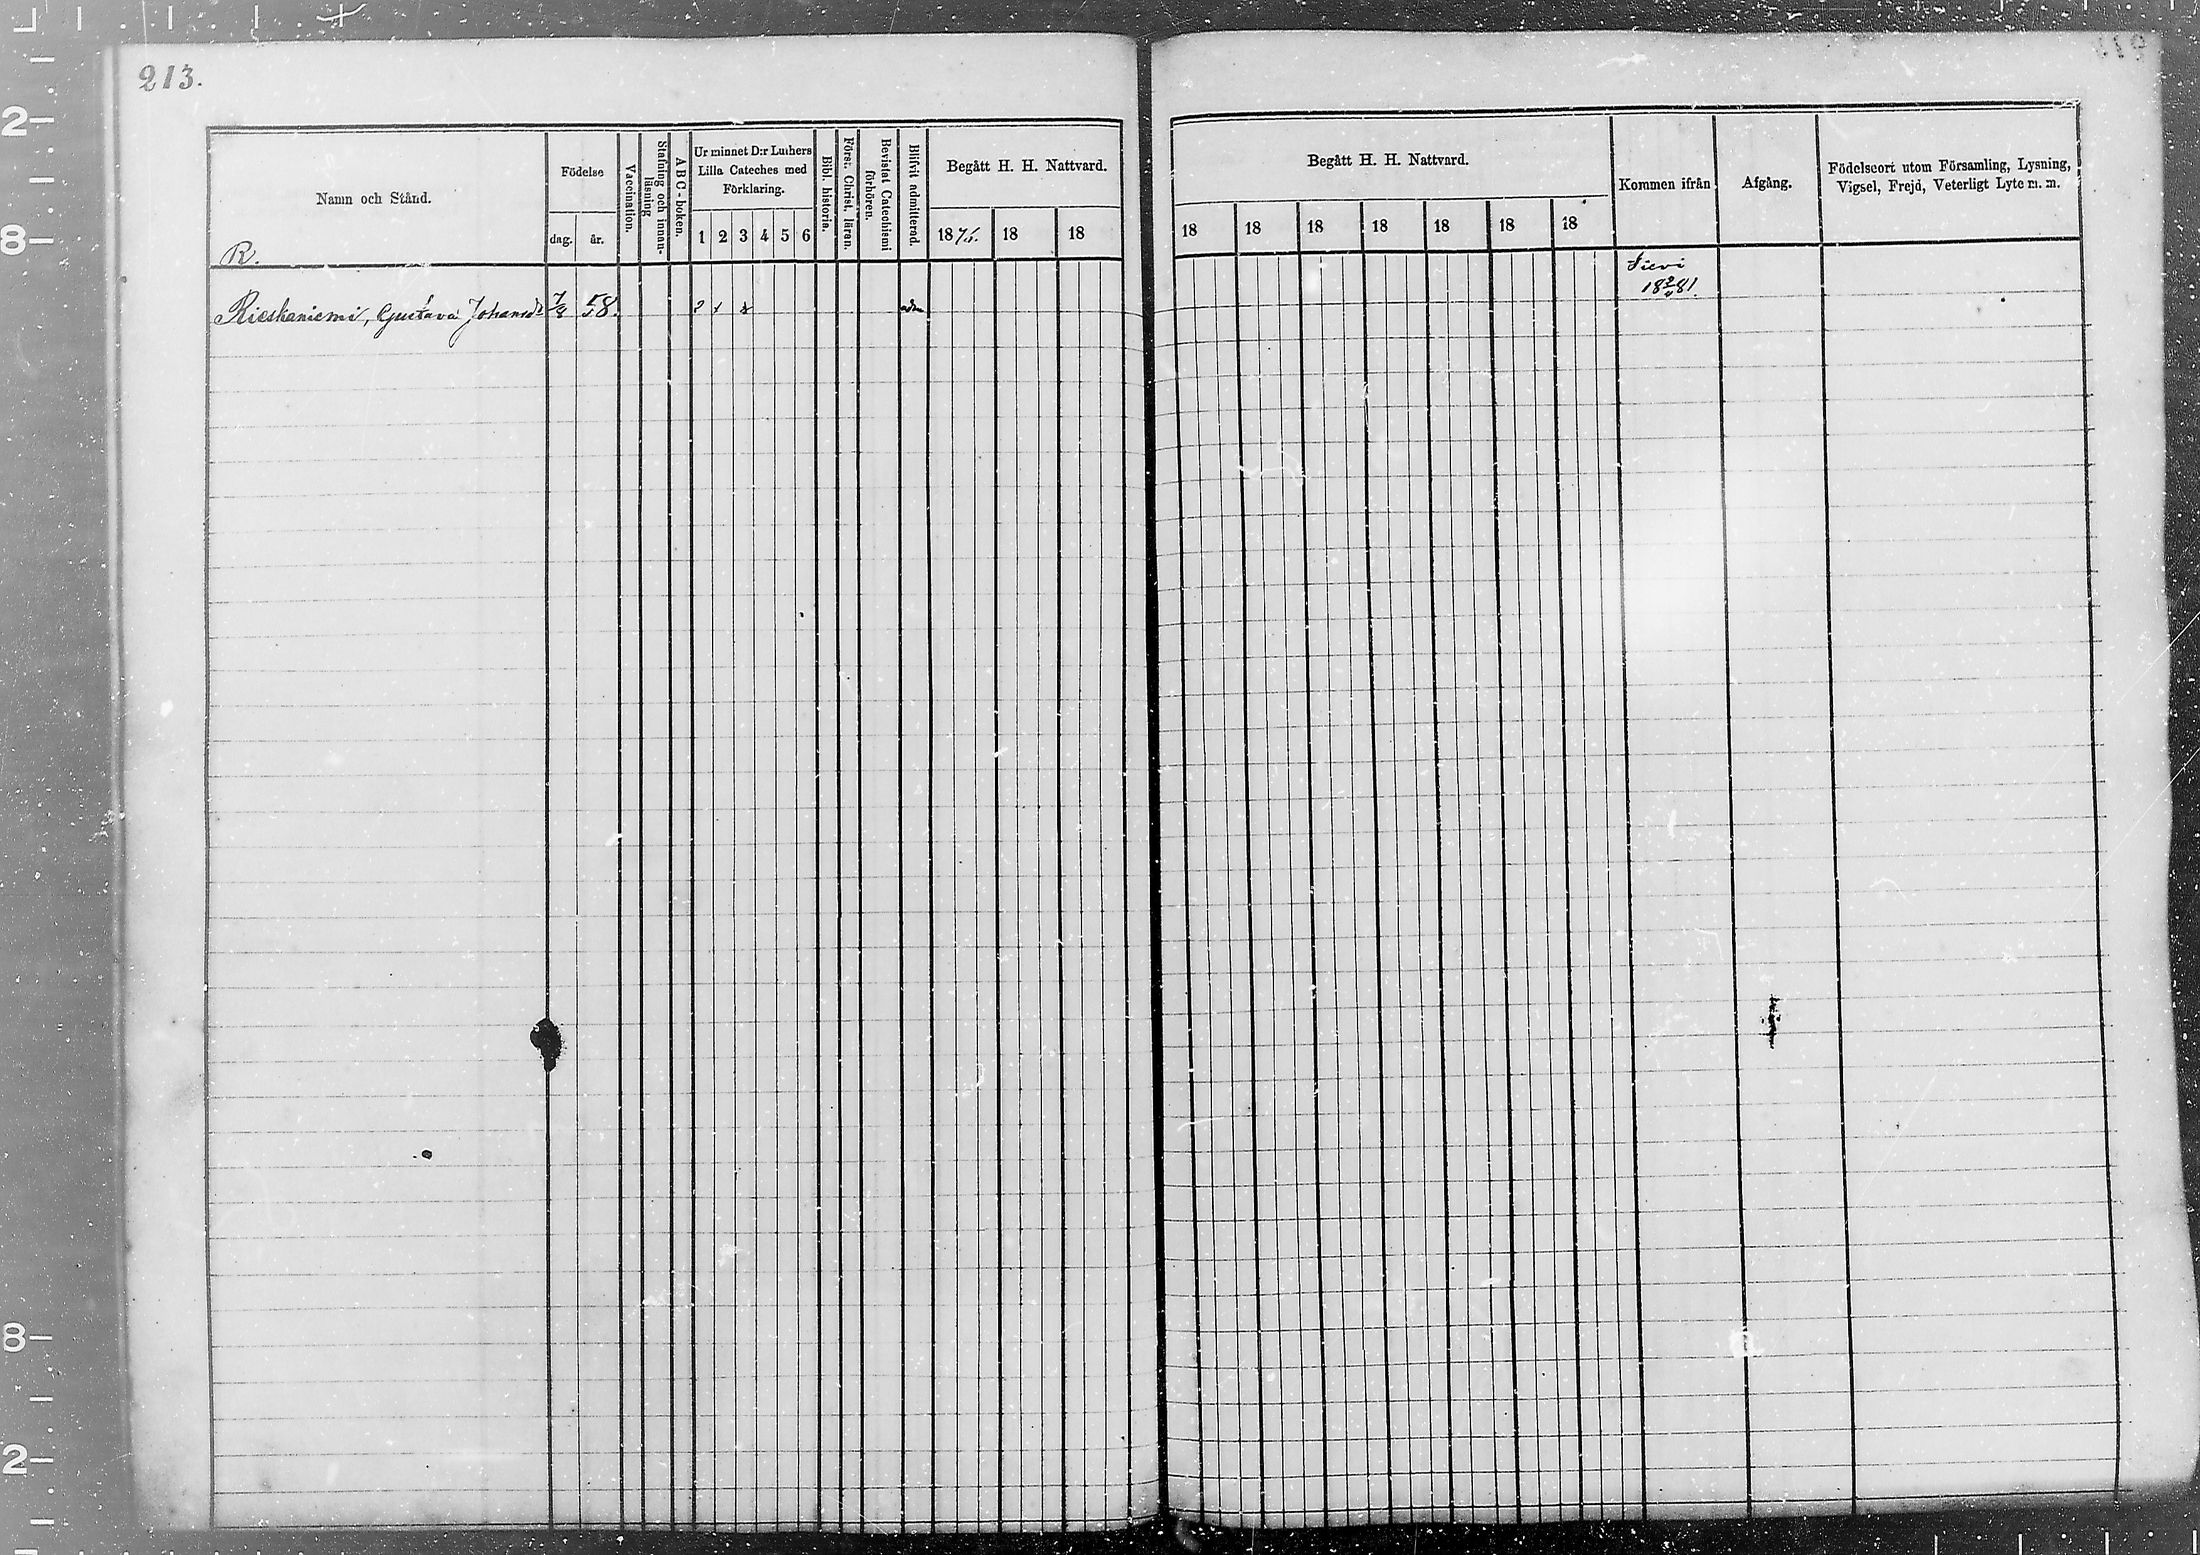 213.
Namn och Stånd.
R.
Födelse
dag. år.
Vaccination.
Stafning och innan-
läsning
ABC-boken.
Ur minnet D:r Luthers
Lilla Cateches med
Förklaring.
1 2 3 4 5 6
Bibl. historia.
Först. Christ. läran.
Bevistat Catechismi
förhören.
Blifvit admitterad.
Begått H. H. Nattvard.
1876. 18 18
Begått H. H. Nattvard.
18 18 18 18 18 18 18
Kommen ifrån
Afgång.
Födelseort utom Församling, Lysning,
Vigsel, Frejd, Veterligt Lyte m. m.
Sievi
18 81.
Rieskaniemi, Gustava Johansd 7/8 58.
2
8
8
2